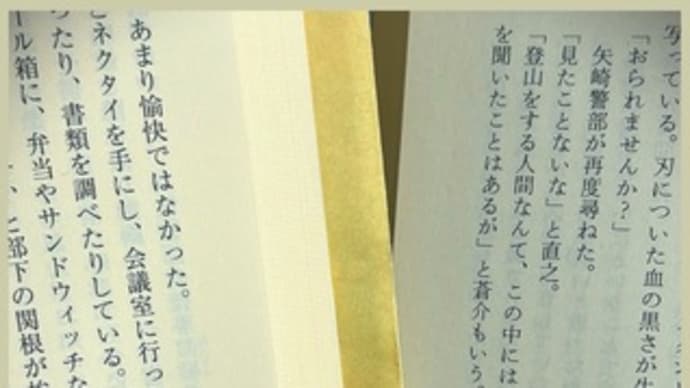 写っている。刃についた血の黒さが
「おられませんか?」
矢崎警部が再度尋ねた。
「見たことないな」と直之。
「登山をする人間なんて、この中には
を聞いたことはあるが」と蒼介もいう
あまり愉快ではなかった。
とネクタイを手にし、会議室に行っ
ったり、書類を調べたりしている。
ール箱に、弁当やサンドウィッチな
と部下の関根が